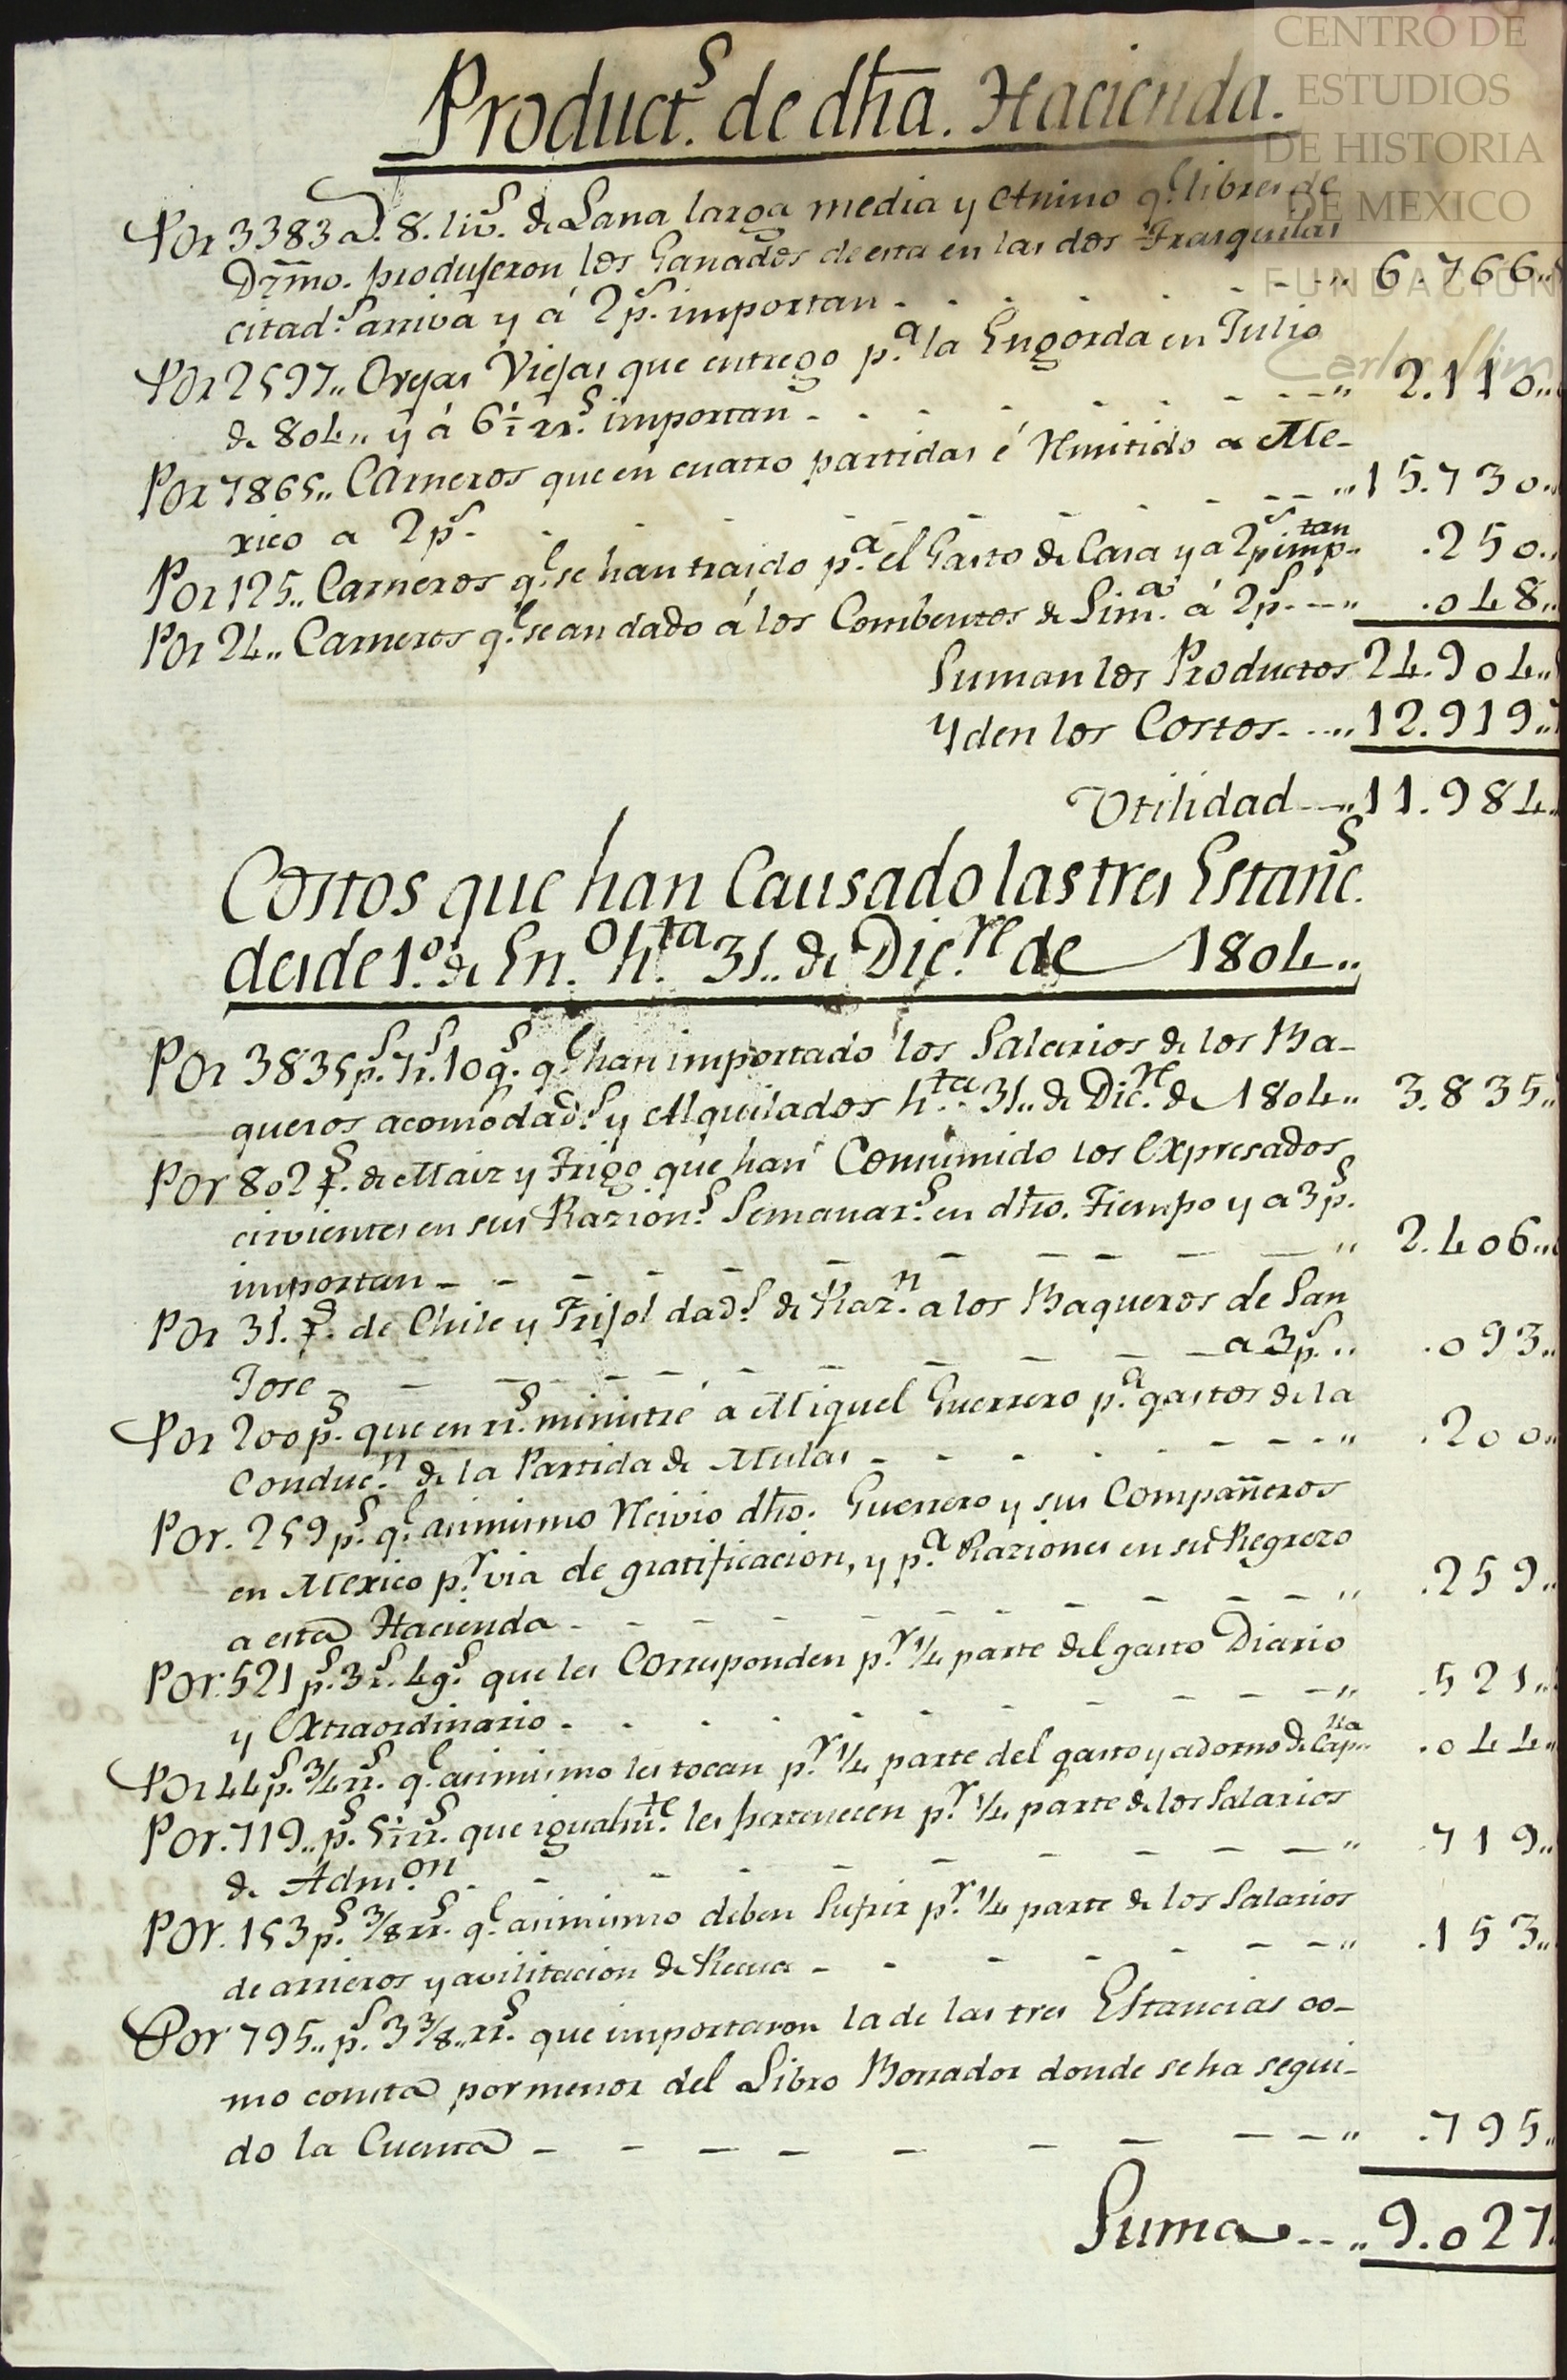 CENTRO DE
ESTUDIOS
DE HISTORIA
DE MEXICO
FUNDACIÓN
Carlos Slim
Product.s de dha. Hacienda.
Por 3383 a. 8. liv.s de Lana larga media y Anino q.e libres de
Dzmo. produjeron los Ganados de esta en las dos Trasquilas
citad.s arriva y á 2 p.s importan - - - - - - - " 6.766..
Por 2597.. Ovejas Viejas que entrego p.a la Engorda en Julio
de 804.. y á 6 1/2 rr.s importan - - - - - - - " 2.110..
Por 7865.. Carneros que en cuatro partidas é Remitido a Me-
xico a 2 p.s - - - - - - - " 15.730..
Por 125.. Carneros q.e se han traido p.a el Gasto de Casa y a 2 p.s imp.tan .250..
Por 24.. Carneros q.e se an dado á los Combentos de Sim.as á 2 p.s - - " .048..
Suman los Productos 24.904..
Yden los Costos - .. " 12.919..
Utilidad - - " 11.984..
Costos que han Causado las tres Estanc.s
desde 1.o de En.o h.ta 31.. de Dic.re de 1804..
Por 3835 p.s 7 r.s 10 g.s q.e han importado los Salarios de los Ba-
queros acomodad.s y Alquilados h.ta 31.. de Dic.re de 1804.. 3.835..
Por 802 f.s de Maiz y Trigo que han Consumido los Expresados
cirvientes en sus Razion.s Semanar.s en dho. Tiempo y a 3 p.s
importan - - - - - - - - - " 2.406..
Por 31. f.s de Chile y Frijol dad.s de Raz.n a los Baqueros de San
Jose - - - - - - - a 3 p.s .. .093..
Por 200 p.s que en rr.s ministré a Miguel Guerrero p.a gastos de la
Conduc.n de la Partida de Mulas - - - - - - - - " .200..
Por. 259 p.s q.e asimismo Reivio dho. Guerrero y sus Compañeros
en Mexico p.r via de gratificacion, y p.a Raziones en su Regrezo
a esta Hacienda - - - - - - - - - " .259..
Por. 521 p.s 3 r.s 4 g.s que les Corresponden p.r 1/4 parte del gasto Diario
y Extraordinario - - - - - - - - " .521..
Por 44 p.s 3/4 rr.s q.e asimismo les tocan p.r 1/4 parte del gasto y adorno de Cap.lla .044..
Por. 719.. p.s 5 1/2 rr.s que igualm.te les pertenecen p.r 1/4 parte de los Salarios
de Adm.on - - - - - - - - " .719..
Por. 153 p.s 3/8 rr.s q.e asimismo deben Sufrir p.r 1/4 parte de los Salarios
de arrieros y avilitacion de Recua - - - - - - - " .153..
Por 795.. p.s 3 3/8.. rr.s que importaron la de las tres Estancias co-
mo consta por menor del Libro Borrador donde se ha segui-
do la Cuenta - - - - - - - - - " .795..
Suma - - .. " 9.027.